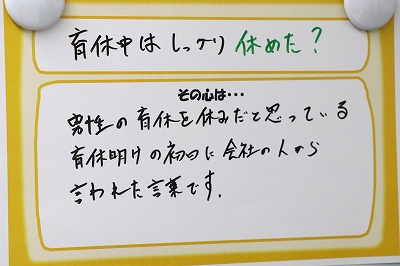 育休中は しっかり 休めた？
その心は…
男性の育休を休みだと思っている
育休明けの初日に会社の人から
言われた言葉です。